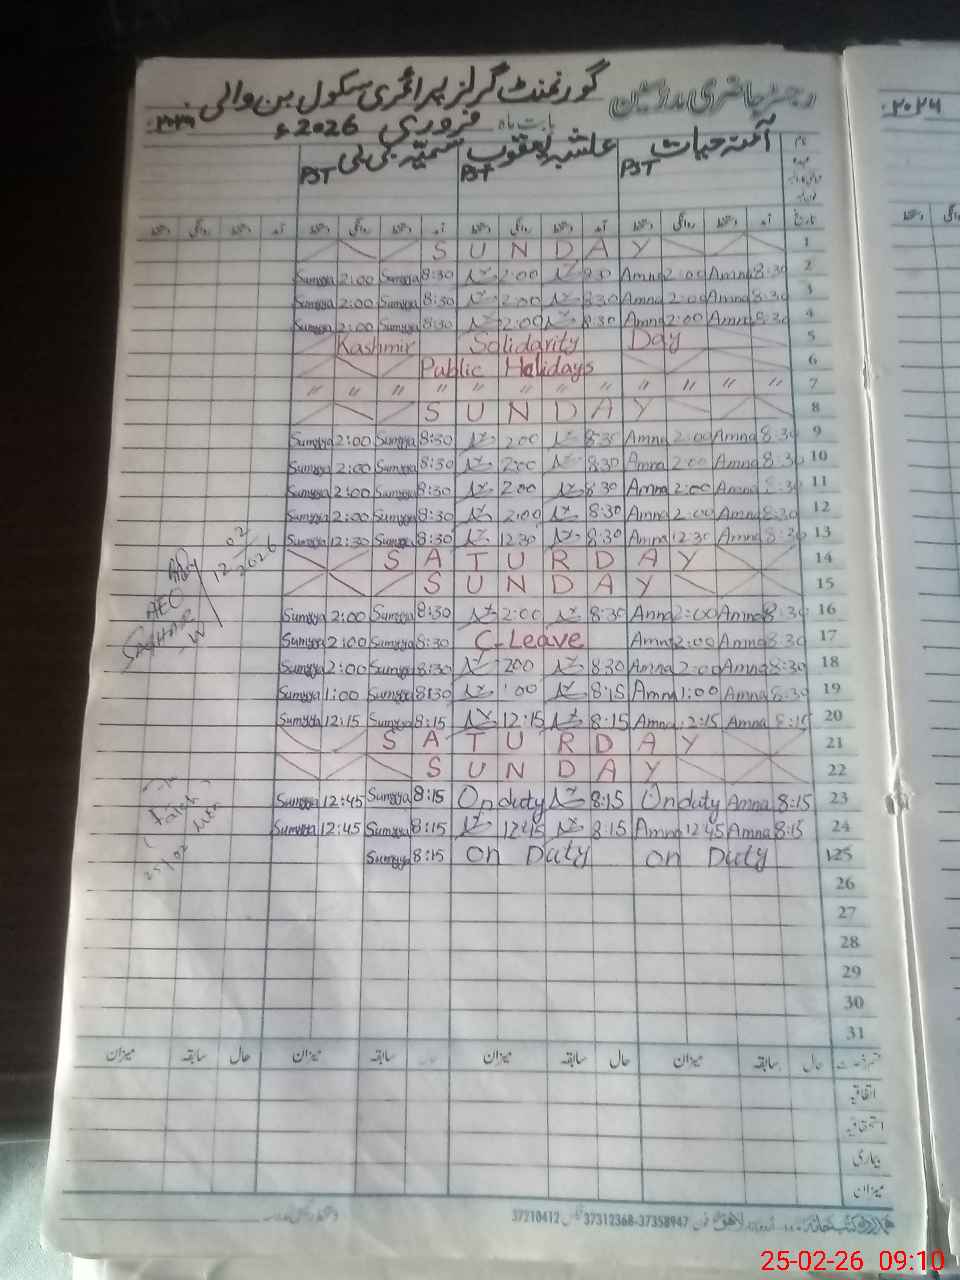 رجسٹر حاضری مدرسین گورنمنٹ گرلز پرائمری سکول بن والی
بابت ماہ فروری 2026ء
آمنہ حیات PST علشبہ یعقوب PST سمیہ بی بی PST
نام
تاریخ آمد دستخط روانگی دستخط آمد دستخط روانگی دستخط آمد دستخط روانگی دستخط آمد دستخط روانگی دستخط
S U N D A Y 1
Sumyya 2:00 Sumyya 8:30 2:00 8:30 Amna 2:00 Amna 8:30 2
Sumyya 2:00 Sumyya 8:30 2:00 8:30 Amna 2:00 Amna 8:30 3
Sumyya 2:00 Sumyya 8:30 2:00 8:30 Amna 2:00 Amna 8:30 4
Kashmir Solidarity Day 5
Public Holidays 6
" " " " " " " " " " " " 7
S U N D A Y 8
Sumyya 2:00 Sumyya 8:30 2:00 8:30 Amna 2:00 Amna 8:30 9
Sumyya 2:00 Sumyya 8:30 2:00 8:30 Amna 2:00 Amna 8:30 10
Sumyya 2:00 Sumyya 8:30 2:00 8:30 Amna 2:00 Amna 8:30 11
Sumyya 2:00 Sumyya 8:30 2:00 8:30 Amna 2:00 Amna 8:30 12
Sumyya 12:30 Sumyya 8:30 12:30 8:30 Amna 12:30 Amna 8:30 13
S A T U R D A Y 14
S U N D A Y 15
12/02/2026
AEO
Sumyya 2:00 Sumyya 8:30 2:00 8:30 Amna 2:00 Amna 8:30 16
Sumyya 2:00 Sumyya 8:30 C-Leave Amna 2:00 Amna 8:30 17
Sumyya 2:00 Sumyya 8:30 2:00 8:30 Amna 2:00 Amna 8:30 18
Sumyya 1:00 Sumyya 8:30 1:00 8:15 Amna 1:00 Amna 8:30 19
Sumyya 12:15 Sumyya 8:15 12:15 8:15 Amna 12:15 Amna 8:15 20
S A T U R D A Y 21
S U N D A Y 22
Sumyya 12:45 Sumyya 8:15 On duty 8:15 On duty Amna 8:15 23
Sumyya 12:45 Sumyya 8:15 12:45 8:15 Amna 12:45 Amna 8:15 24
Sumyya 8:15 on Duty on Duty 25
25/02
26
27
28
29
30
31
حال سابقہ میزان حال سابقہ میزان حال سابقہ میزان حال سابقہ میزان
اتفاقیہ
استحقاقیہ
بیماری
میزان
37210412 37312368-37358947
25-02-26 09:10